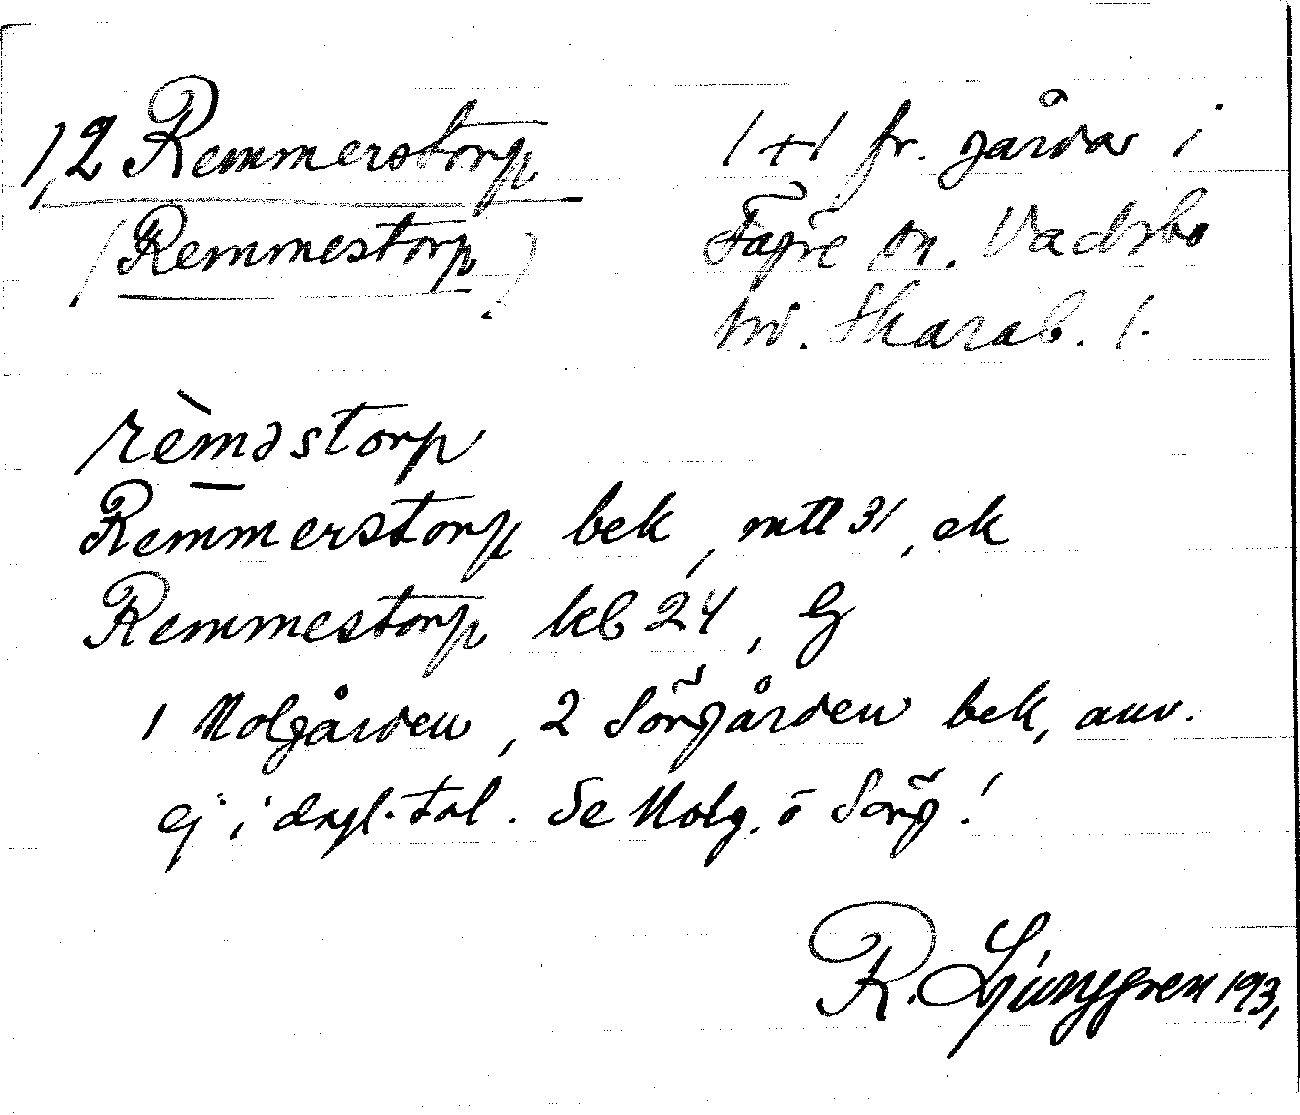 1,2 Remmerstorp
(Remmestorp)
1+1 fr. gårdar i
Fägre sn. Vadsbo
hd. Skarab. l.
rèməstorp
Remmerstorp bek, mtl 31, ek
Remmestorp kb 24, G
1 Nolgården, 2 Sörgården bek, anv.
ej i dagl. tal. Se Nolg. o Sörg!
R. Ljunggren 1931